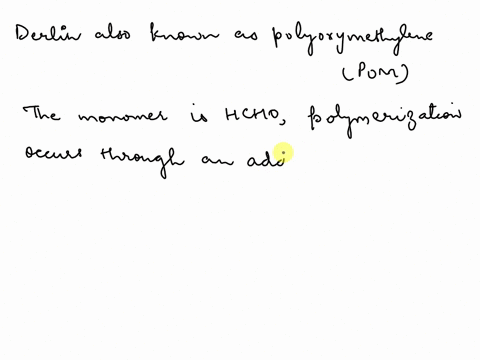 Derlin also known as polyoxymethylene
(POM)
The monomer is HCHO, polymerization
occurs through an add